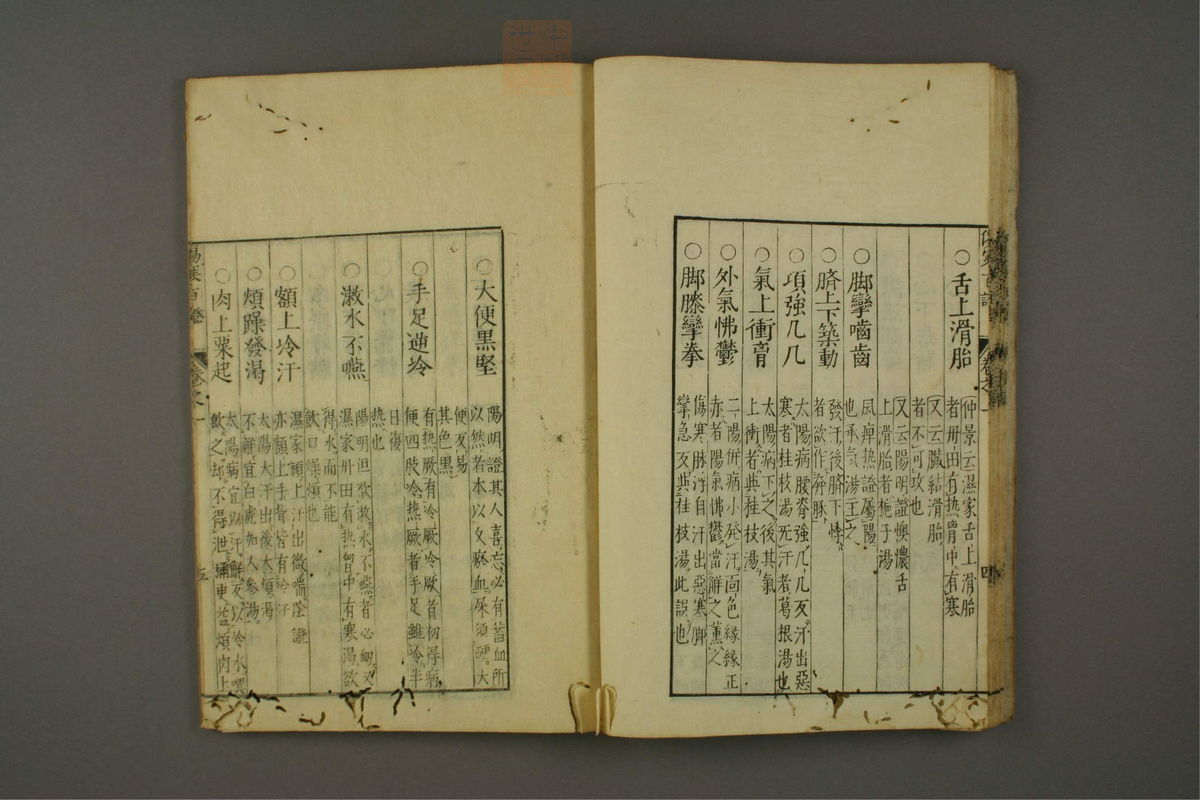 ○舌上滑胎
仲景云濕家舌上滑胎
者丹田有热胷中有寒
又云臓結滑胎
者不可攻也
又云陽明證懊憹舌
上滑胎者梔子湯
○脚攣嚙齒
風痺热證屬陽
也承氣湯主之
○臍上下築動
發汗後臍下悸
者欲作奔豚
○項強几几
太陽病腰脊強几几反汗出惡
寒者桂枝湯无汗者葛根湯也
○氣上衝胷
太陽病下之後其氣
上衝者與桂枝湯
○外氣怫鬱
二陽併病小発汗面色緣緣正
赤者陽氣怫鬱當解之薰之
○脚膝攣拳
傷寒脉浮自汗出惡寒脚
攣急反與桂枝湯此誤也
四
○大便黒堅
陽明證其人喜忘必有蓄血所
以然者本以久瘀血屎須硬大
便反易
其色黒
○手足逆冷
有热厥有冷厥冷厥者初得病
便四肢冷热厥者手足雖冷半
日復
热也
○漱水不嚥
陽明但欲漱水不嚥者必衂又
濕家丹田有热胷中有寒渴欲
得水而不能
飲口燥煩也
○額上冷汗
濕家頭上汗出微喘陰證
亦額上手背皆有冷汗
○煩躁發渴
太陽大汗出後大煩渴
不解宜白虎加人参湯
○肉上粟起
太陽病宜以汗觧反以冷水噀
飲之却不得泄彌更益煩肉上
卷之一
五